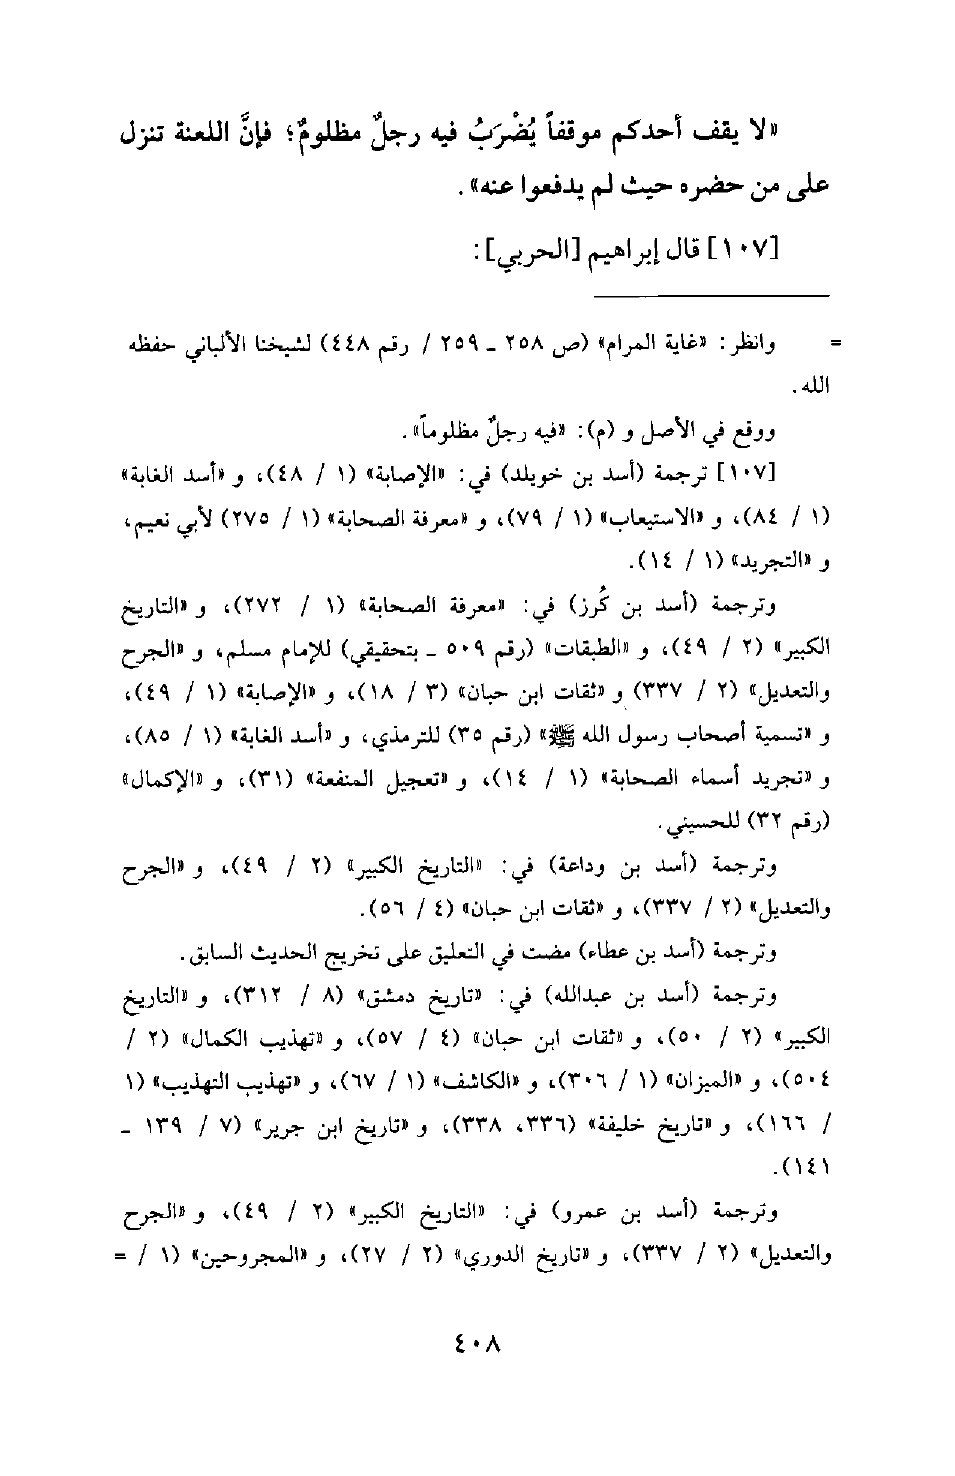 «لا يقف أحدكم موقفاً يُضْرَبُ فيه رجلٌ مظلومٌ؛ فإنَّ اللعنة تنزل
على من حضره حيث لم يدفعوا عنه».
[١٠٧] قال إبراهيم [الحربي]:
= وانظر: «غاية المرام» (ص ٢٥٨ ـ ٢٥٩ / رقم ٤٤٨) لشيخنا الألباني حفظه
الله.
ووقع في الأصل و (م): «فيه رجلٌ مظلوماً».
[١٠٧] ترجمة (أسد بن خويلد) في: «الإصابة» (١ / ٤٨)، و «أسد الغابة»
(١ / ٨٤)، و «الاستيعاب» (١ / ٧٩)، و «معرفة الصحابة» (١ / ٢٧٥) لأبي نعيم،
و «التجريد» (١ / ١٤).
وترجمة (أسد بن كُرز) في: «معرفة الصحابة» (١ / ٢٧٢)، و «التاريخ
الكبير» (٢ / ٤٩)، و «الطبقات» (رقم ٥٠٩ ـ بتحقيقي) للإمام مسلم، و «الجرح
والتعديل» (٢ / ٣٣٧) و «ثقات ابن حبان» (٣ / ١٨)، و «الإصابة» (١ / ٤٩)،
و «تسمية أصحاب رسول الله ﷺ» (رقم ٣٥) للترمذي، و «أسد الغابة» (١ / ٨٥)،
و «تجريد أسماء الصحابة» (١ / ١٤)، و «تعجيل المنفعة» (٣١)، و «الإكمال»
(رقم ٣٢) للحسيني.
وترجمة (أسد بن وداعة) في: «التاريخ الكبير» (٢ / ٤٩)، و «الجرح
والتعديل» (٢ / ٣٣٧)، و «ثقات ابن حبان» (٤ / ٥٦).
وترجمة (أسد بن عطاء) مضت في التعليق على تخريج الحديث السابق.
وترجمة (أسد بن عبدالله) في: «تاريخ دمشق» (٨ / ٣١٢)، و «التاريخ
الكبير» (٢ / ٥٠)، و «ثقات ابن حبان» (٤ / ٥٧)، و «تهذيب الكمال» (٢ /
٥٠٤)، و «الميزان» (١ / ٣٠٦)، و «الكاشف» (١ / ٦٧)، و «تهذيب التهذيب» (١
/ ١٦٦)، و «تاريخ خليفة» (٣٣٦، ٣٣٨)، و «تاريخ ابن جرير» (٧ / ١٣٩ ـ
١٤١).
وترجمة (أسد بن عمرو) في: «التاريخ الكبير» (٢ / ٤٩)، و «الجرح
والتعديل» (٢ / ٣٣٧)، و «تاريخ الدوري» (٢ / ٢٧)، و «المجروحين» (١ / =
٤٠٨